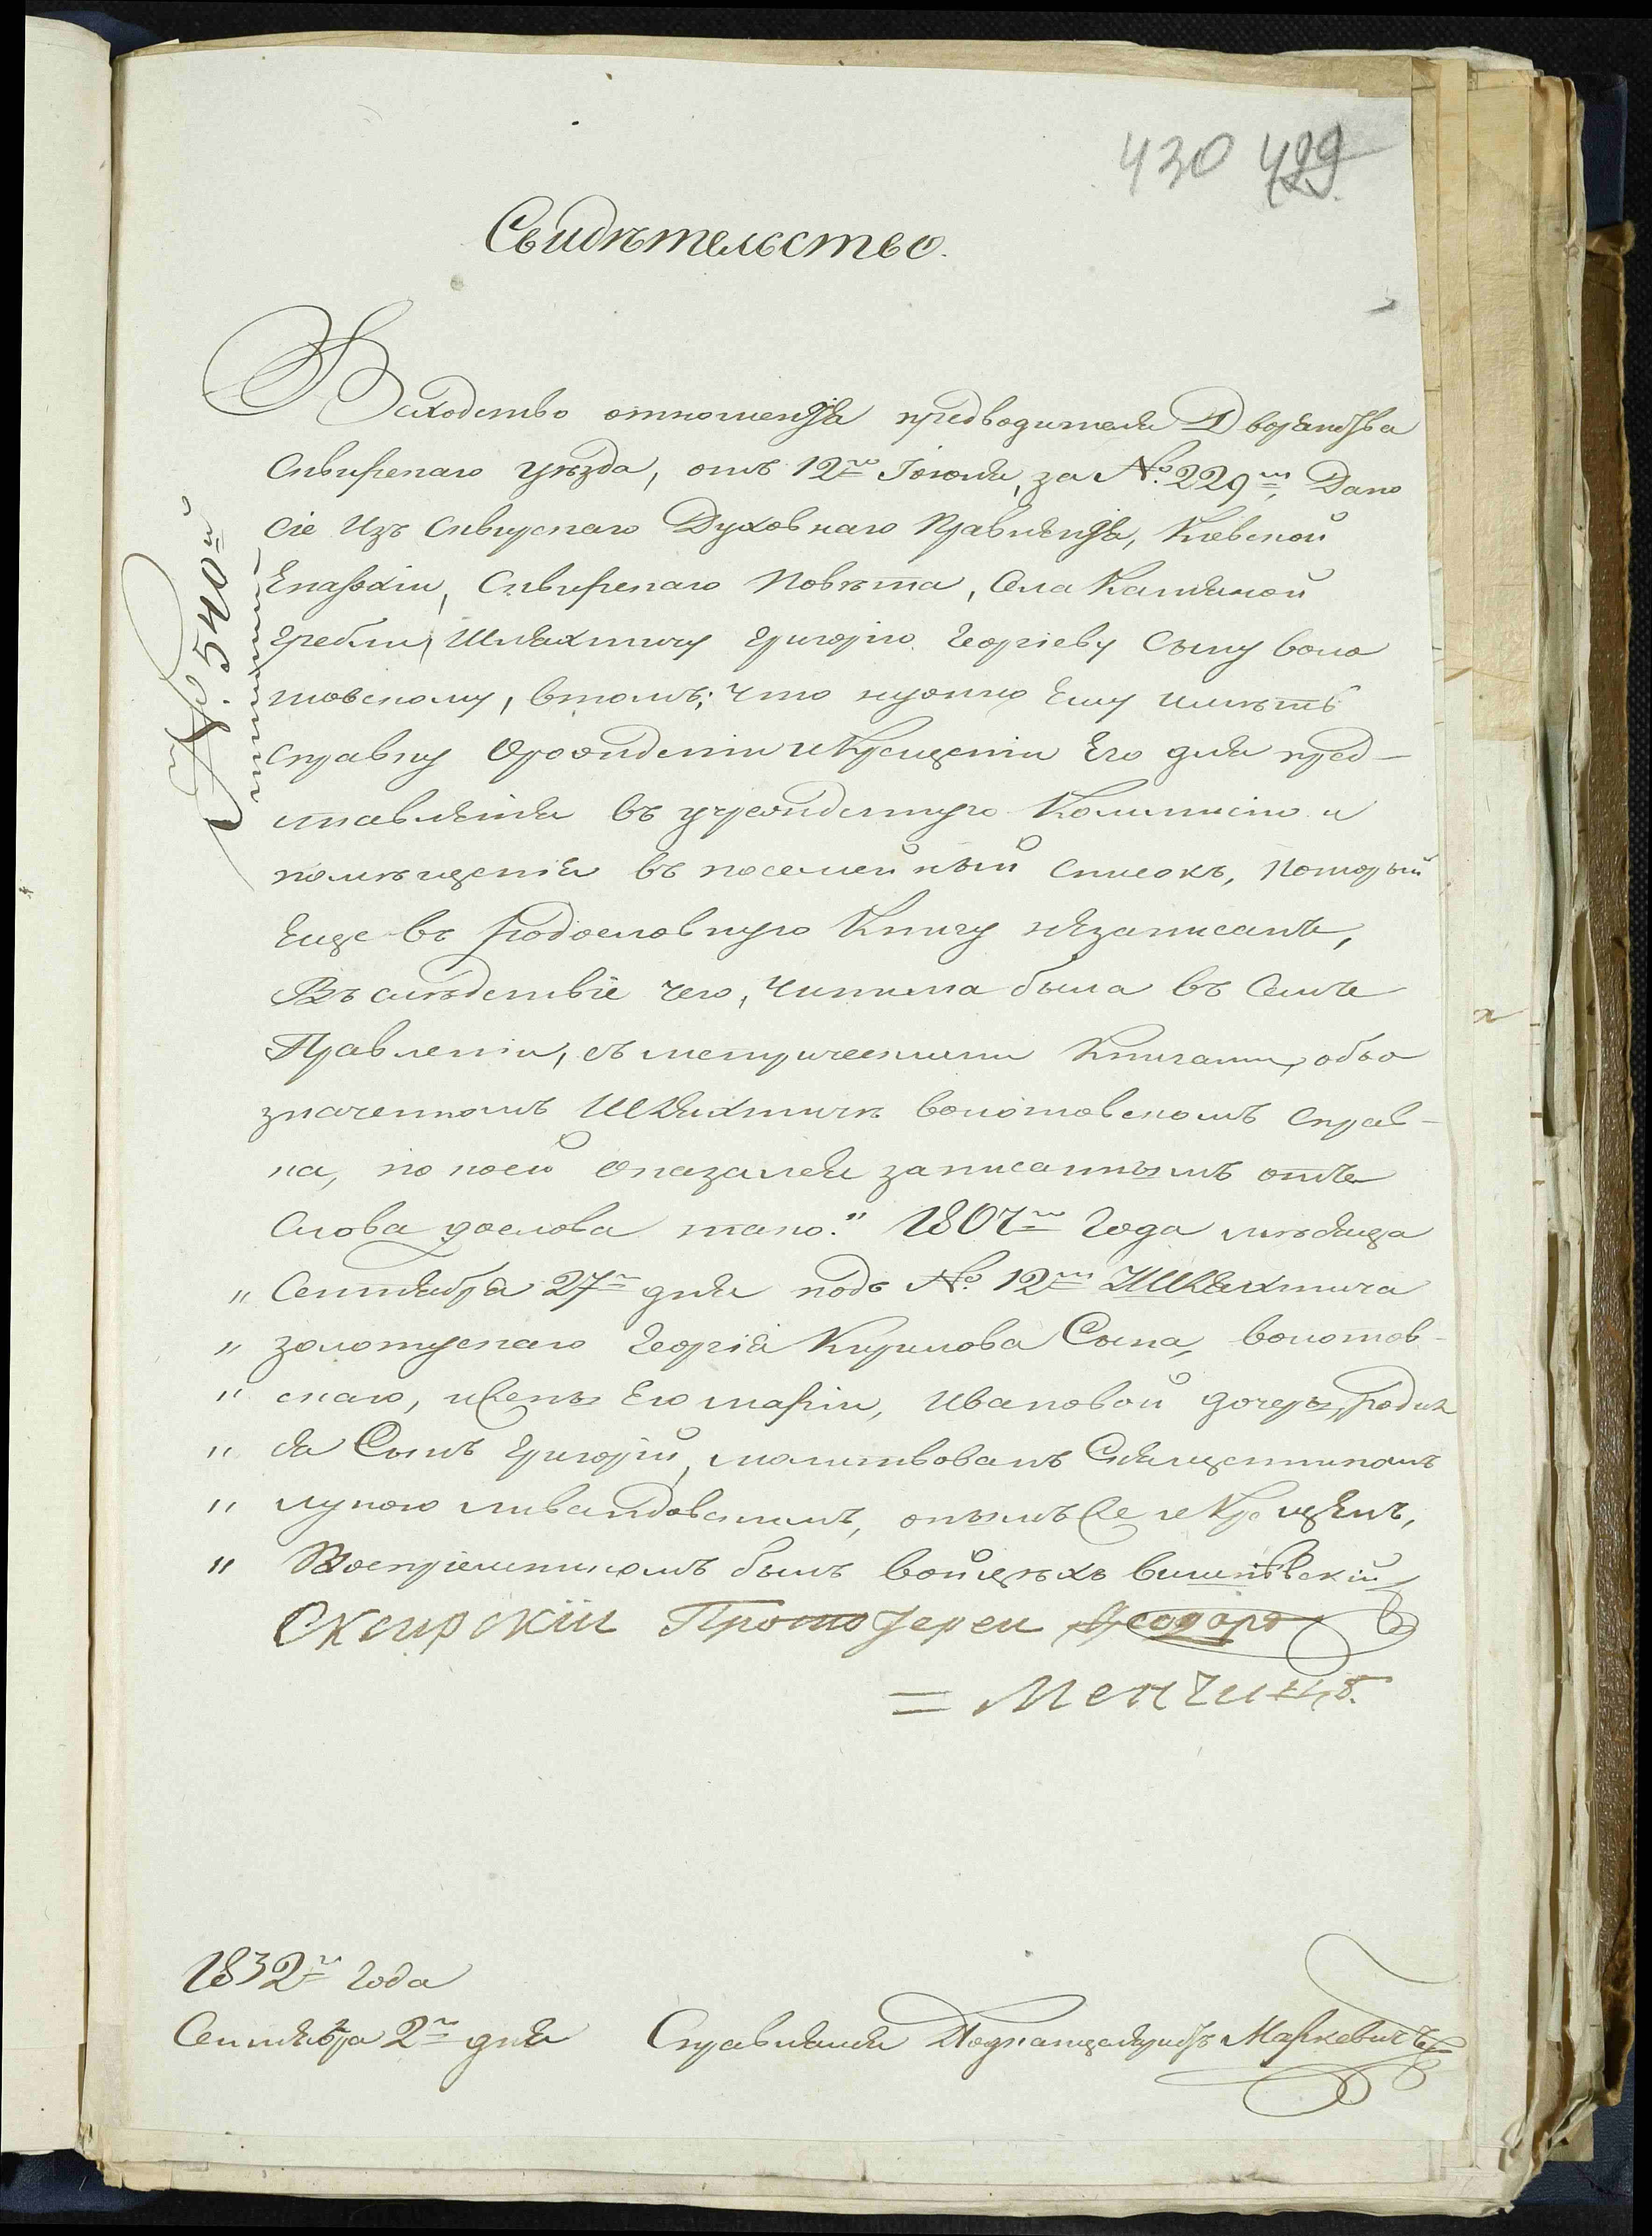 430 429
Свидѣтельство.
№. 540й
Всходство отношенія предводителя Дворянства
Сквирскаго уѣзда, отъ 12го Іюля, за №. 229м, Дано
сіе Изъ Сквирскаго Духовнаго Правленія, Кіевской
Епархіи, Сквирскаго Повѣта, Села Каменной
гребли, Шляхтичу Григорію Георгіеву Сыну воло
товскому, втомъ; что нужно Ему имѣть
справку Орождении иКрещеніи Его для пред-
ставленія въ учрежденную Коммисію и
помѣщенія въ посемейный списокъ, который
Еще въ родословную Книгу незаписанъ,
Въ слѣдствіе чего, Чинима была въ Семъ
Правленіи, съ метрическими Книгами, обѣо
значенномъ Шляхтичѣ волотовскомъ справ-
ка, по коей оказался записаннымъ отъ
Слова дослова тако." 1807го Года мѣсяца
" Сентября 27го дня подъ №. 12м Шляхтича
" золотускаго Георгія Кирилова Сына, волотов-
" скаго, иЖены Его маріи, Ивановой дочеры, родил
" ся Сынъ Григорій, молитвованъ Священникомъ
" лукою ливандовскимъ, онымъ же и Крещенъ,
" Воспріемникомъ былъ войцѣхъ вишнѣвскій
Сквирскій Протоіерей Феодоръ
= Менчицъ.
1832го Года
Сентября 2го дня
Справлялся Подканцеляристъ Маркевичъ